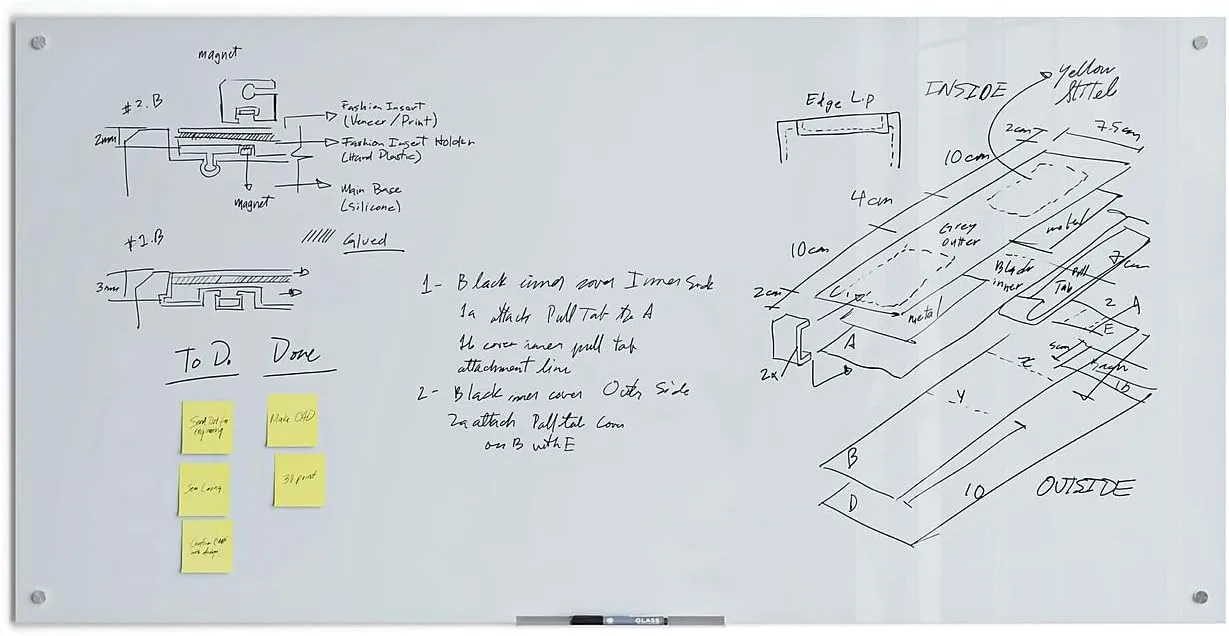 magnet
#2.B
2mm
Fashion Insert
(Veneer/Print)
Fashion Insert Holder
(Hard Plastic)
Main Base
(Silicone)
magnet
#1.B
Glued
3mm
To Do.
Done
Make CAD
3D print
1- Black inner cover Inner Side
1a attach Pull Tab to A
1b cover inner pull tab
attachment line
2- Black inner cover Outer Side
2a attach Pull tab
on B with E
Edge Lip
INSIDE
Yellow
2cm
7.5cm
10cm
4cm
Grey
outter
metal
10cm
Black
inner
Pull
Tab
7cm
2cm
metal
2
A
E
A
2x
5cm
Y
B
10
D
OUTSIDE
GLASS